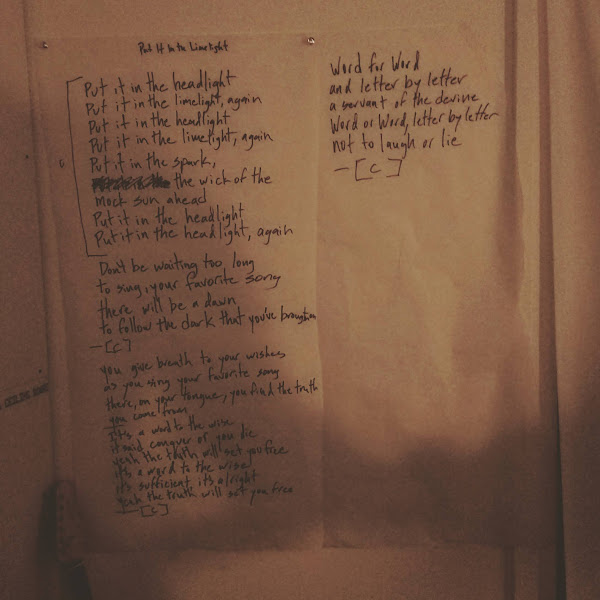 Put It In the Limelight
Put it in the headlight
Put it in the limelight, again
Put it in the headlight
Put it in the limelight, again
Put it in the spark,
the wick of the
mock sun ahead
Put it in the headlight
Put it in the headlight, again
c
Don't be waiting too long
to sing, your favorite song
there will be a dawn
to follow the dark that you've brought on
—[c]
you give breath to your wishes
as you sing your favorite song
there, on your tongue, you find the truth
you come from
it's a word to the wise
it said conquer or you die
yeah the truth will set you free
it's a word to the wise
it's sufficient, it's alright
yeah the truth will set you free
—[c]
Word for Word
and letter by letter
a servant of the devine
Word or Word, letter by letter
not to laugh or lie
—[c]